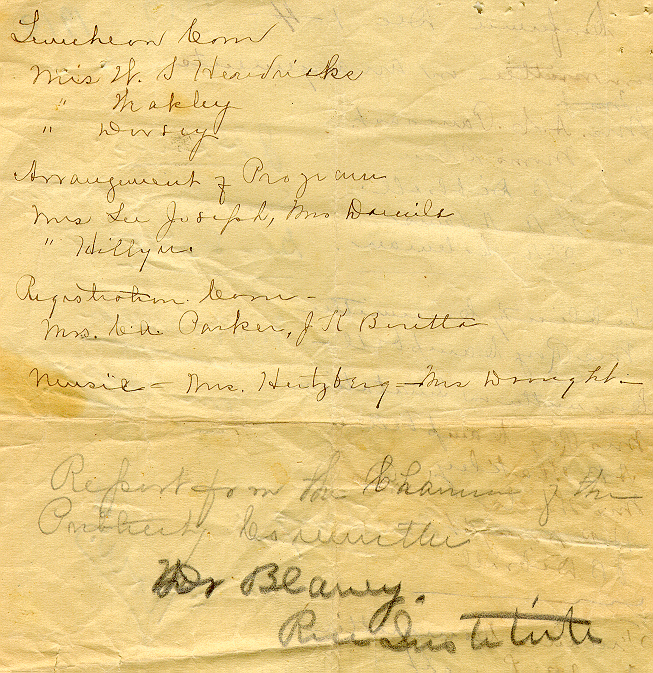 Luncheon Com
Mrs W. S Hendricks
" Thakley
" Dorsey
Arrangement of Program
Mrs Lee Joseph, Mrs Daniels
" Hillyer.
Registration Com -
Mrs. C. A. Parker, J K Beretta
Music - Mrs. Hertzberg - Mrs Drought -
Report from the Chairman of the
Publicity. Committee
Blaney.
Rice Institute